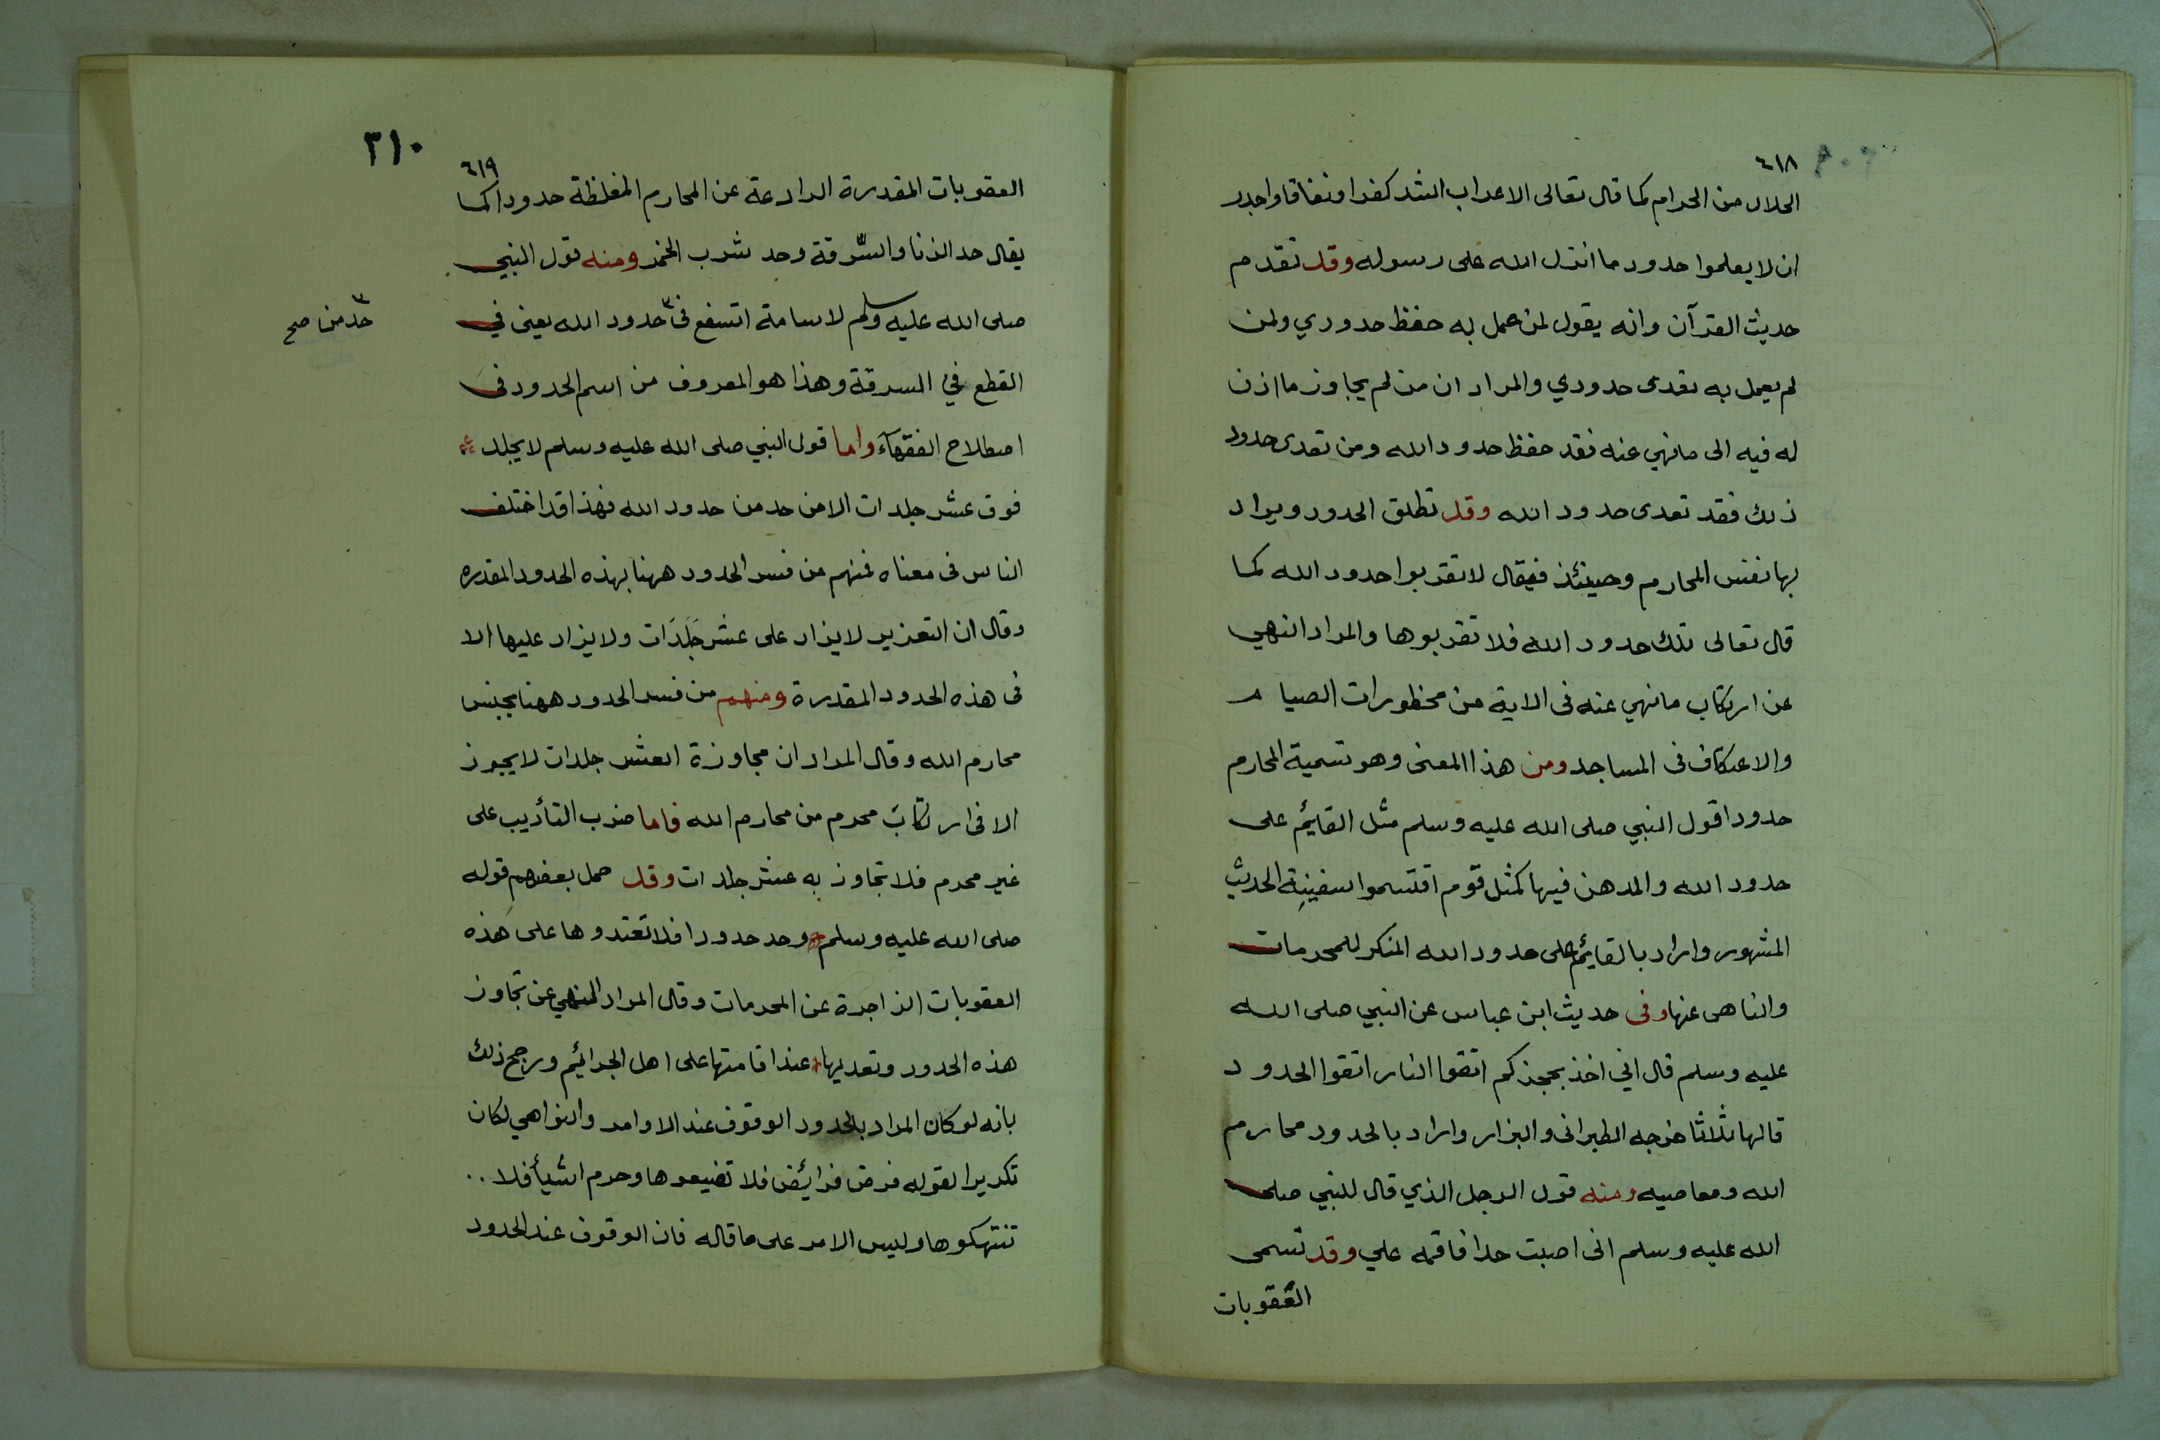 ٦١٨
الحلال من الحرام كما قال تعالى الاعراب اشد كفرا ونفاقا واجدر
ان لا يعلموا حدود ما انزل الله على رسوله وقد تقدم
حديث القرآن وانه يقول لمن عمل به حفظ حدودي ولمن
لم يعمل به تعدى حدودي والمراد ان من لم يجاوز ما اذن
له فيه الى ما نهي عنه فقد حفظ حدود الله ومن تعدى حدود
ذلك فقد تعدى حدود الله وقد تطلق الحدود ويراد
بها نفس المحارم وحينئذ فيقال لا تقربوا حدود الله كما
قال تعالى تلك حدود الله فلا تقربوها والمراد النهي
عن ارتكاب ما نهي عنه فى الاية من محظورات الصيام
والاعتكاف فى المساجد ومن هذا المعنى وهو تسمية المحارم
حدودا قول النبي صلى الله عليه وسلم مثل القائم على
حدود الله والمدهن فيها كمثل قوم اقتسموا سفينة الحديث
المشهور واراد بالقائم على حدود الله المنكر للمحرمات
والناهى عنها وفى حديث ابن عباس عن النبي صلى الله
عليه وسلم قال اني اخذ بحجزكم اتقوا النار اتقوا الحدود
قالها ثلاثا خرجه الطبرانى والبزار واراد بالحدود محارم
الله ومعاصيه ومنه قول الرجل الذي قال للنبي صلى
الله عليه وسلم انى اصبت حدا فاقمه علي وقد تسمى
العقوبات
٣١٠
٦١٩
العقوبات المقدرة الرادعة عن المحارم المغلظة حدودا كما
يقال حد الزنا والسّرقة وحد شرب الخمر ومنه قول النبي
صلى الله عليه وسلم لاسامة اتشفع فى ٣ حدود الله يعنى في
٣ حد من صح
القطع في السرقة وهذا هو المعروف من اسم الحدود فى
اصطلاح الفقهآء واما قول النبي صلى الله عليه وسلم لا يجلد
فوق عشر جلدات الا من حد من حدود الله فهذا قد اختلف
الناس فى معناه فمنهم من فسر الحدود ههنا بهذه الحدود المقدره
وقال ان التعزير لا يزاد على عشر جَلَدَات ولا يزاد عليها الا
فى هذه الحدود المقدرة ومنهم من فسر الحدود ههنا بجنس
محارم الله وقال المراد ان مجاوزة العشر جلدات لا يجوز
الا فى ارتكاب محرم من محارم الله فاما ضرب التأديب على
غير محرم فلا تجاوز به عشر جلدات وقد حمل بعضهم قوله
صلى الله عليه وسلم وحد حدودا فلا تعتدوها على هذه
العقوبات الزاجرة عن المحرمات وقال المراد النهي عن تجاوز
هذه الحدود وتعديها عند اقامتها على اهل الجرائم ورجح ذلك
بانه لو كان المراد بالحدود الوقوف عند الاوامر والنواهي لكان
تكريرا لقوله فرض فرائض فلا تضيعوها وحرم اشيأ فلا ..
تنتهكوها وليس الامر على ما قاله فان الوقوف عند الحدود